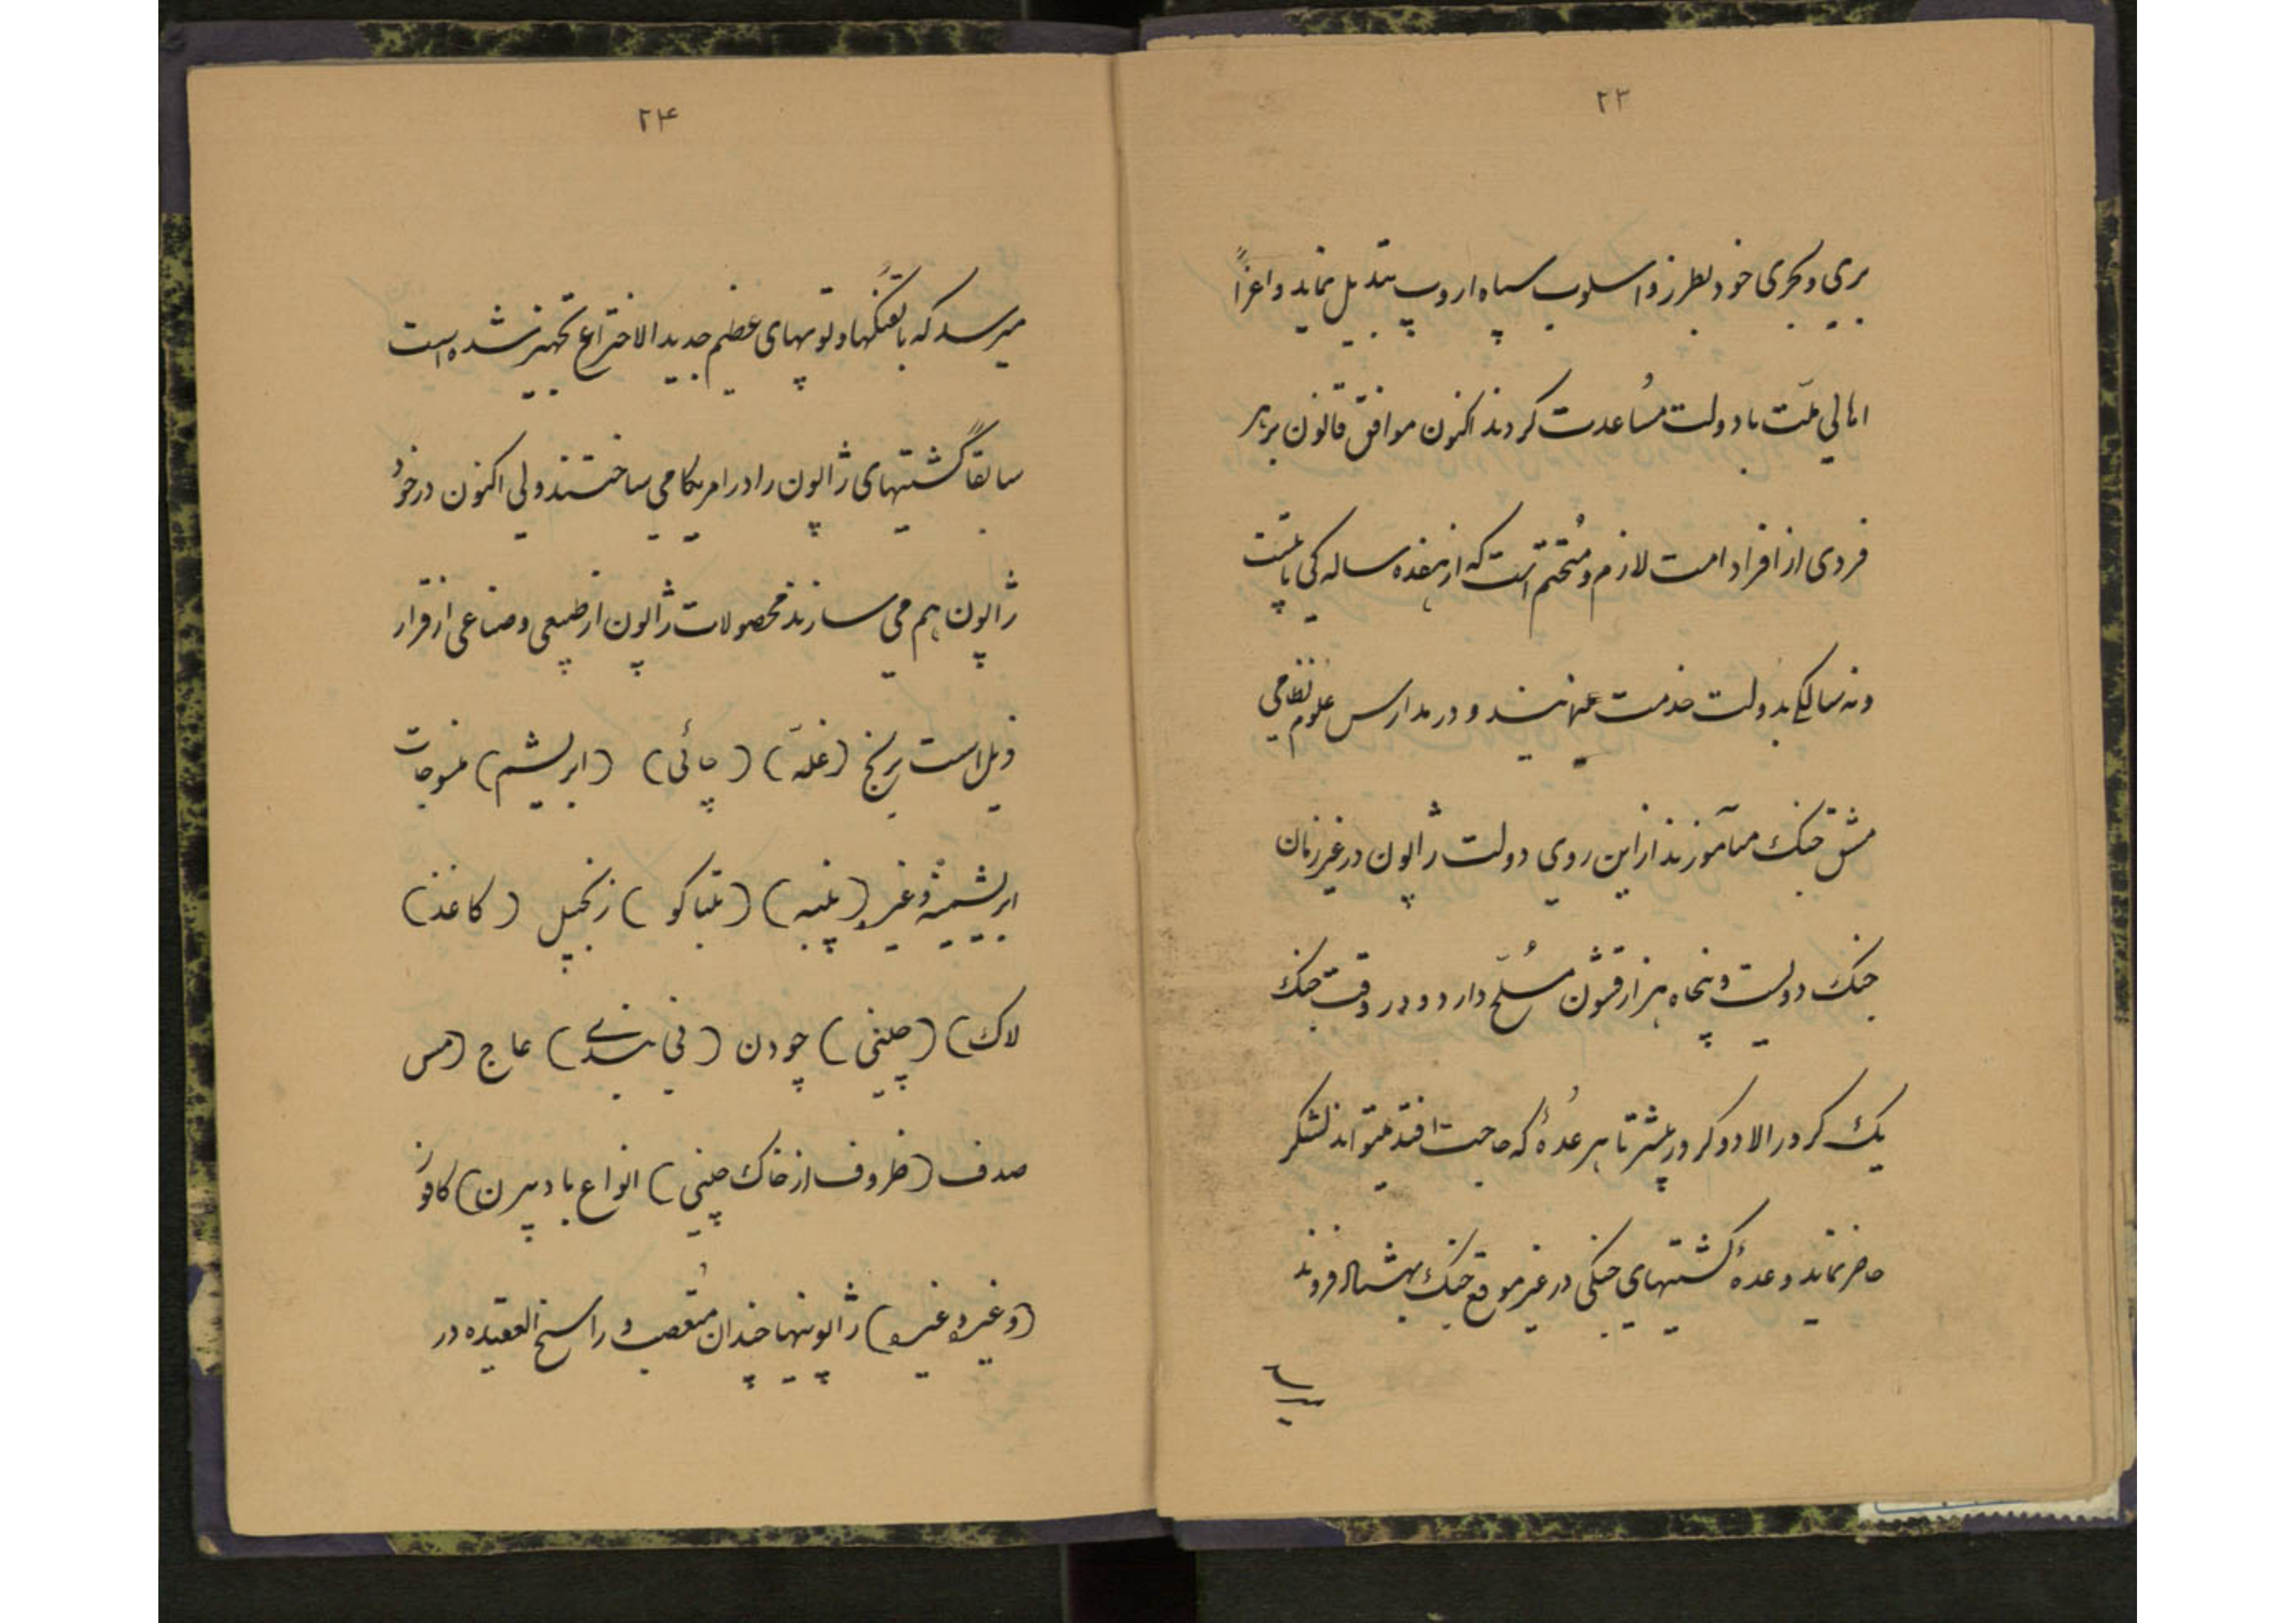 ۲۳
بری و بحری خود بطرز و اسلوب سپاه اروپ تبدیل نماید و اغراً
اهالی ملّت با دولت مُساعدت کردند اکنون موافق قانون بر هر
فردی از افراد امت لازم و مُتحتم است که از هفده سالهگی تا بیست
و نه سالگی بدولت خدمت مینمایند و در مدارس علوم نظامی
مشق جنک میآموزند از این روی دولت ژاپون در غیر زمان
جنک دولیست و پنجاه هزار قشون مُسلّح دارد و در وقت جنک
یک کرور الا دو کرور بیشتر تا هر عُدهٔ که حاجت افتد میتواند لشکر
حاضر نماید و عدهٔ کشتیهای جنکی در غیر موقع جنک بهشتاد فروند
۲۴
میرسد که با تفنکها و توپهای عظیم جدید الاختراع تجهیز شده است
سابقاً کشتیهای ژاپون را در امریکا می ساختند ولی اکنون در خود
ژاپون هم می سازند محصولات ژاپون از طبیعی و صناعی از قرار
ذیل است برنج (غلّه) (چائی) (ابریشم) منسوجات
ابریشمینه و غیره (پنبه) (تنباکو) زنجبیل (کاغذ)
لاک) (چینی) چودن (نی هندی) عاج (مس
صدف (ظروف از خاک چینی) انواع بادبیزن) کافور
(و غیره و غیره) ژاپونیها چندان مُتعصب و راسخ العقیده در